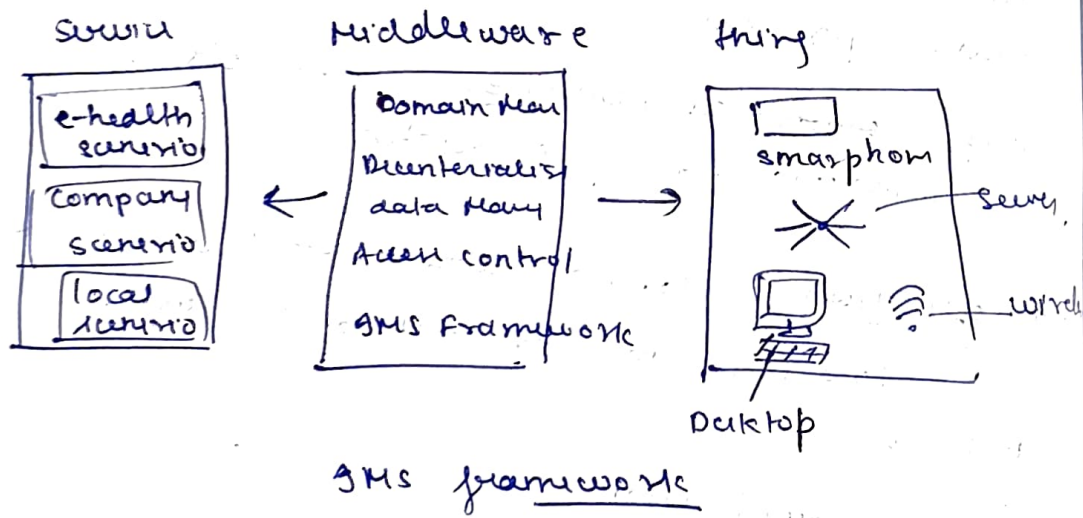 Middleware
thing
e-health
scenerio
company
scenerio
local
scenerio
Domain Man
Decenterialis
data Man
Access control
IMS Framework
smarphon
Desktop
IMS framework